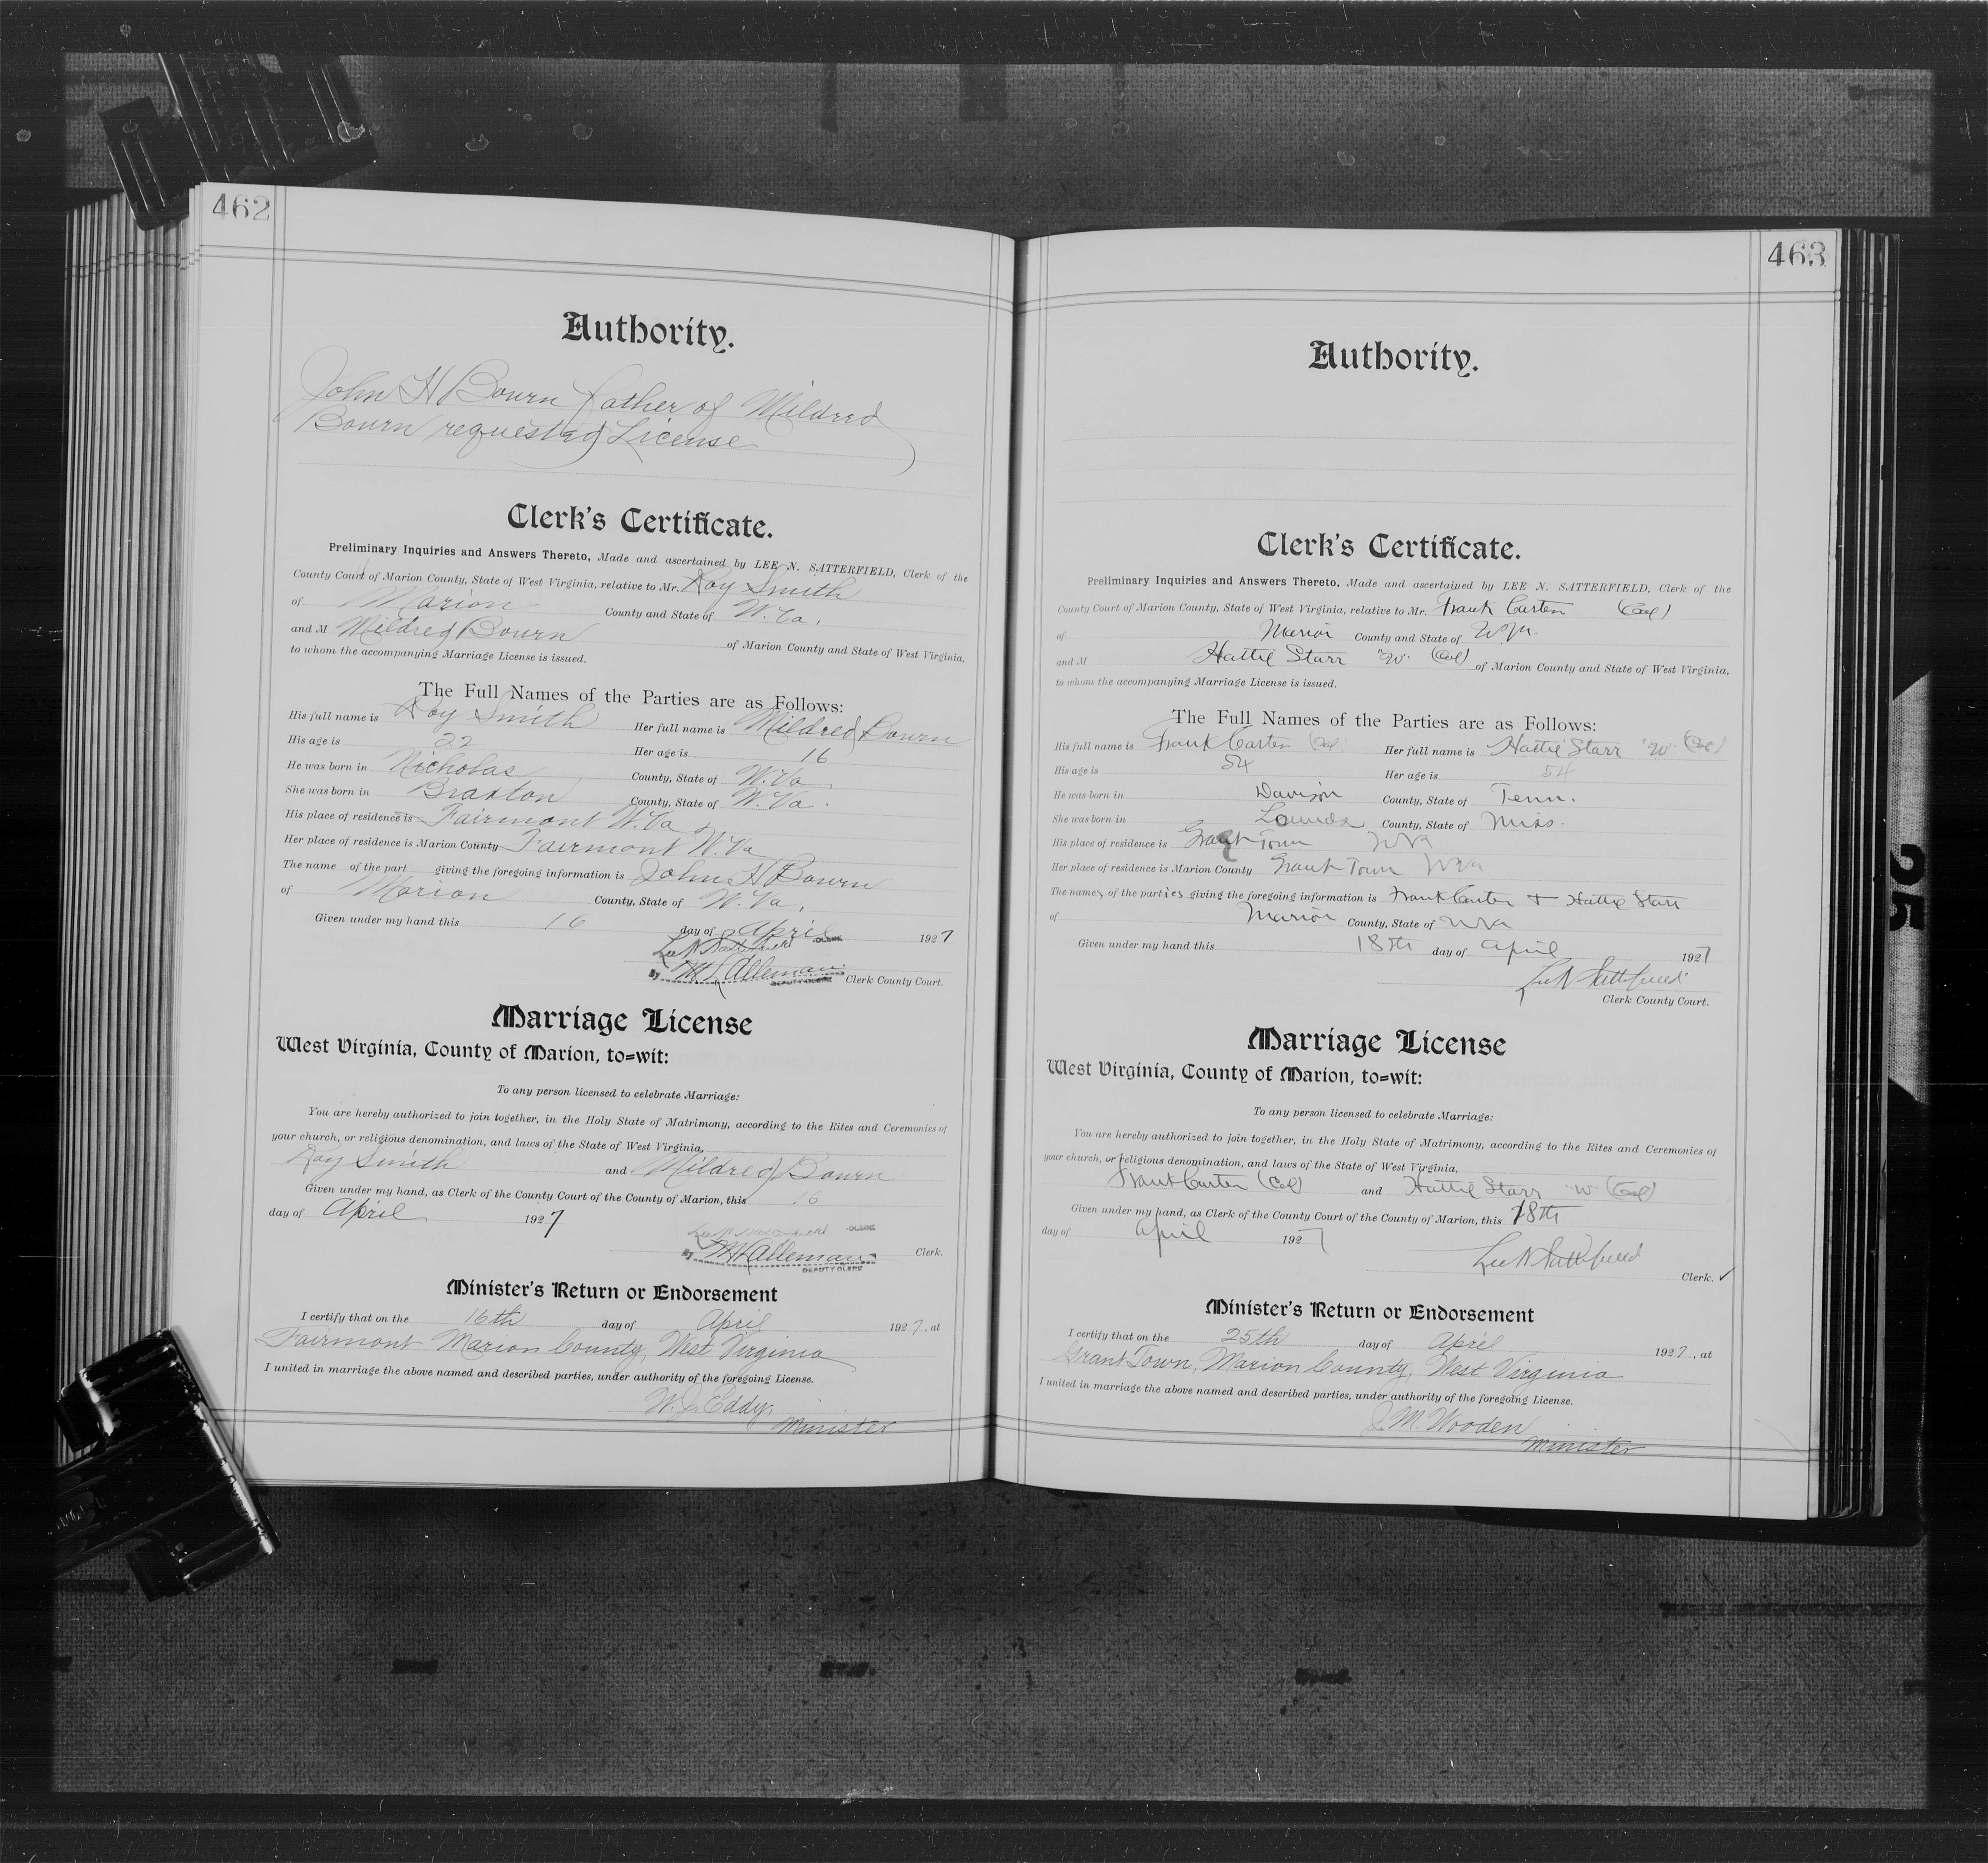 462
Authority.
John H Bourn father of Mildred
Bourn requested License
Clerk's Certificate.
Preliminary Inquiries and Answers Thereto, Made and ascertained by LEE N. SATTERFIELD, Clerk of the
County Court of Marion County, State of West Virginia, relative to Mr. Roy Smith
of Marion County and State of W.Va.
and M Mildred Bourn of Marion County and State of West Virginia,
to whom the accompanying Marriage License is issued.
The Full Names of the Parties are as Follows:
His full name is Roy Smith Her full name is Mildred Bourn
His age is 22 Her age is 16
He was born in Nicholas County, State of W.Va.
She was born in Braxton County, State of W.Va.
His place of residence is Fairmont W.Va
Her place of residence is Marion County Fairmont W.Va
The name of the part giving the foregoing information is John H Bourn
of Marion County, State of W.Va.
Given under my hand this 16 day of April 1927
Lee N Satterfield CLERK
By M L Alleman DEPUTY CLERK Clerk County Court.
Marriage License
West Virginia, County of Marion, to=wit:
To any person licensed to celebrate Marriage:
You are hereby authorized to join together, in the Holy State of Matrimony, according to the Rites and Ceremonies of
your church, or religious denomination, and laws of the State of West Virginia,
Roy Smith and Mildred Bourn
Given under my hand, as Clerk of the County Court of the County of Marion, this 16
day of April 1927
Lee N Satterfield CLERK
By Alleman Clerk.
DEPUTY CLERK
Minister's Return or Endorsement
I certify that on the 16th day of April 1927, at
Fairmont Marion County, West Virginia
I united in marriage the above named and described parties, under authority of the foregoing License.
W. J. Eddy,
Minister
463
Authority.
Clerk's Certificate.
Preliminary Inquiries and Answers Thereto, Made and ascertained by LEE N. SATTERFIELD, Clerk of the
County Court of Marion County, State of West Virginia, relative to Mr. Frank Carter (Col)
of Marion County and State of W Va.
and M Hattie Starr "W" (Col) of Marion County and State of West Virginia,
to whom the accompanying Marriage License is issued.
The Full Names of the Parties are as Follows:
His full name is Frank Carter (Col) Her full name is Hattie Starr "W" (Col)
His age is 54 Her age is 54
He was born in Davison County, State of Tenn.
She was born in Lounds County, State of Miss.
His place of residence is Grant Town W Va
Her place of residence is Marion County Grant Town W Va
The names of the parties giving the foregoing information is Frank Carter + Hattie Starr
of Marion County, State of W Va
Given under my hand this 18th day of April 1927
Lee N Satterfield
Clerk County Court.
Marriage License
West Virginia, County of Marion, to=wit:
To any person licensed to celebrate Marriage:
You are hereby authorized to join together, in the Holy State of Matrimony, according to the Rites and Ceremonies of
your church, or religious denomination, and laws of the State of West Virginia,
Frank Carter (Col) and Hattie Starr "W" (Col)
Given under my hand, as Clerk of the County Court of the County of Marion, this 18th
day of April 1927
Lee N Satterfield
Clerk.
Minister's Return or Endorsement
I certify that on the 25th day of April 1927, at
Grant Town, Marion County, West Virginia
I united in marriage the above named and described parties, under authority of the foregoing License.
J. M. Wooden
Minister
25